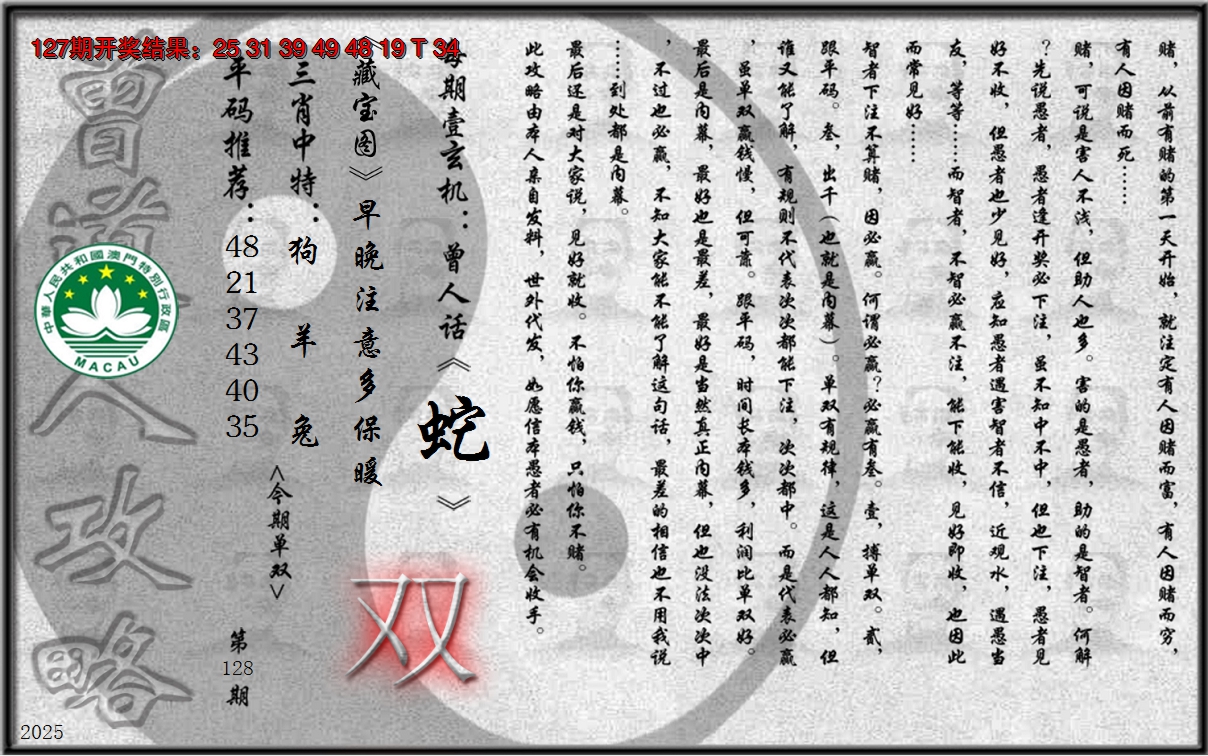 127期开奖结果：25 31 39 49 48 19 T 34
赌，从前有赌的第一天开始，就注定有人因赌而富，有人因赌而穷，
有人因赌而死……
赌，可说是害人不浅，但助人也多。害的是愚者，助的是智者。何解
？先说愚者，愚者逢开奖必下注，虽不知中不中，但也下注，愚者见
好不收，但愚者也少见好，应知愚者遇害智者不信，近观水，遇愚当
友，等等……而智者，不智必赢不注，能下能收，见好即收，也因此
而常见好……
智者下注不算赌，因必赢。何谓必赢？必赢有叁。壹，搏单双。贰，
跟平码。叁，出千（也就是内幕）。单双有规律，这是人人都知，但
谁又能了解，有规则不代表次次都能下注，次次都中。而是代表必赢
，虽单双赢钱慢，但可靠。跟平码，时间长本钱多，利润比单双好。
最后是内幕，最好也是最差，最好是当然真正内幕，但也没法次次中
，不过也必赢，不知大家能不能了解这句话，最差的相信也不用我说
……到处都是内幕。
最后还是对大家说，见好就收。不怕你赢钱，只怕你不赌。
此攻略由本人亲自发料，世外代发，如愿信本愚者必有机会收手。
每期壹玄机：曾人话《蛇》
《藏宝图》早晚注意多保暖
双
三肖中特：狗 羊 兔
<今期单双>
平码推荐：48 21 37 43 40 35
第128期
曾道人攻略
中華人民共和國澳門特別行政區
MACAU
2025